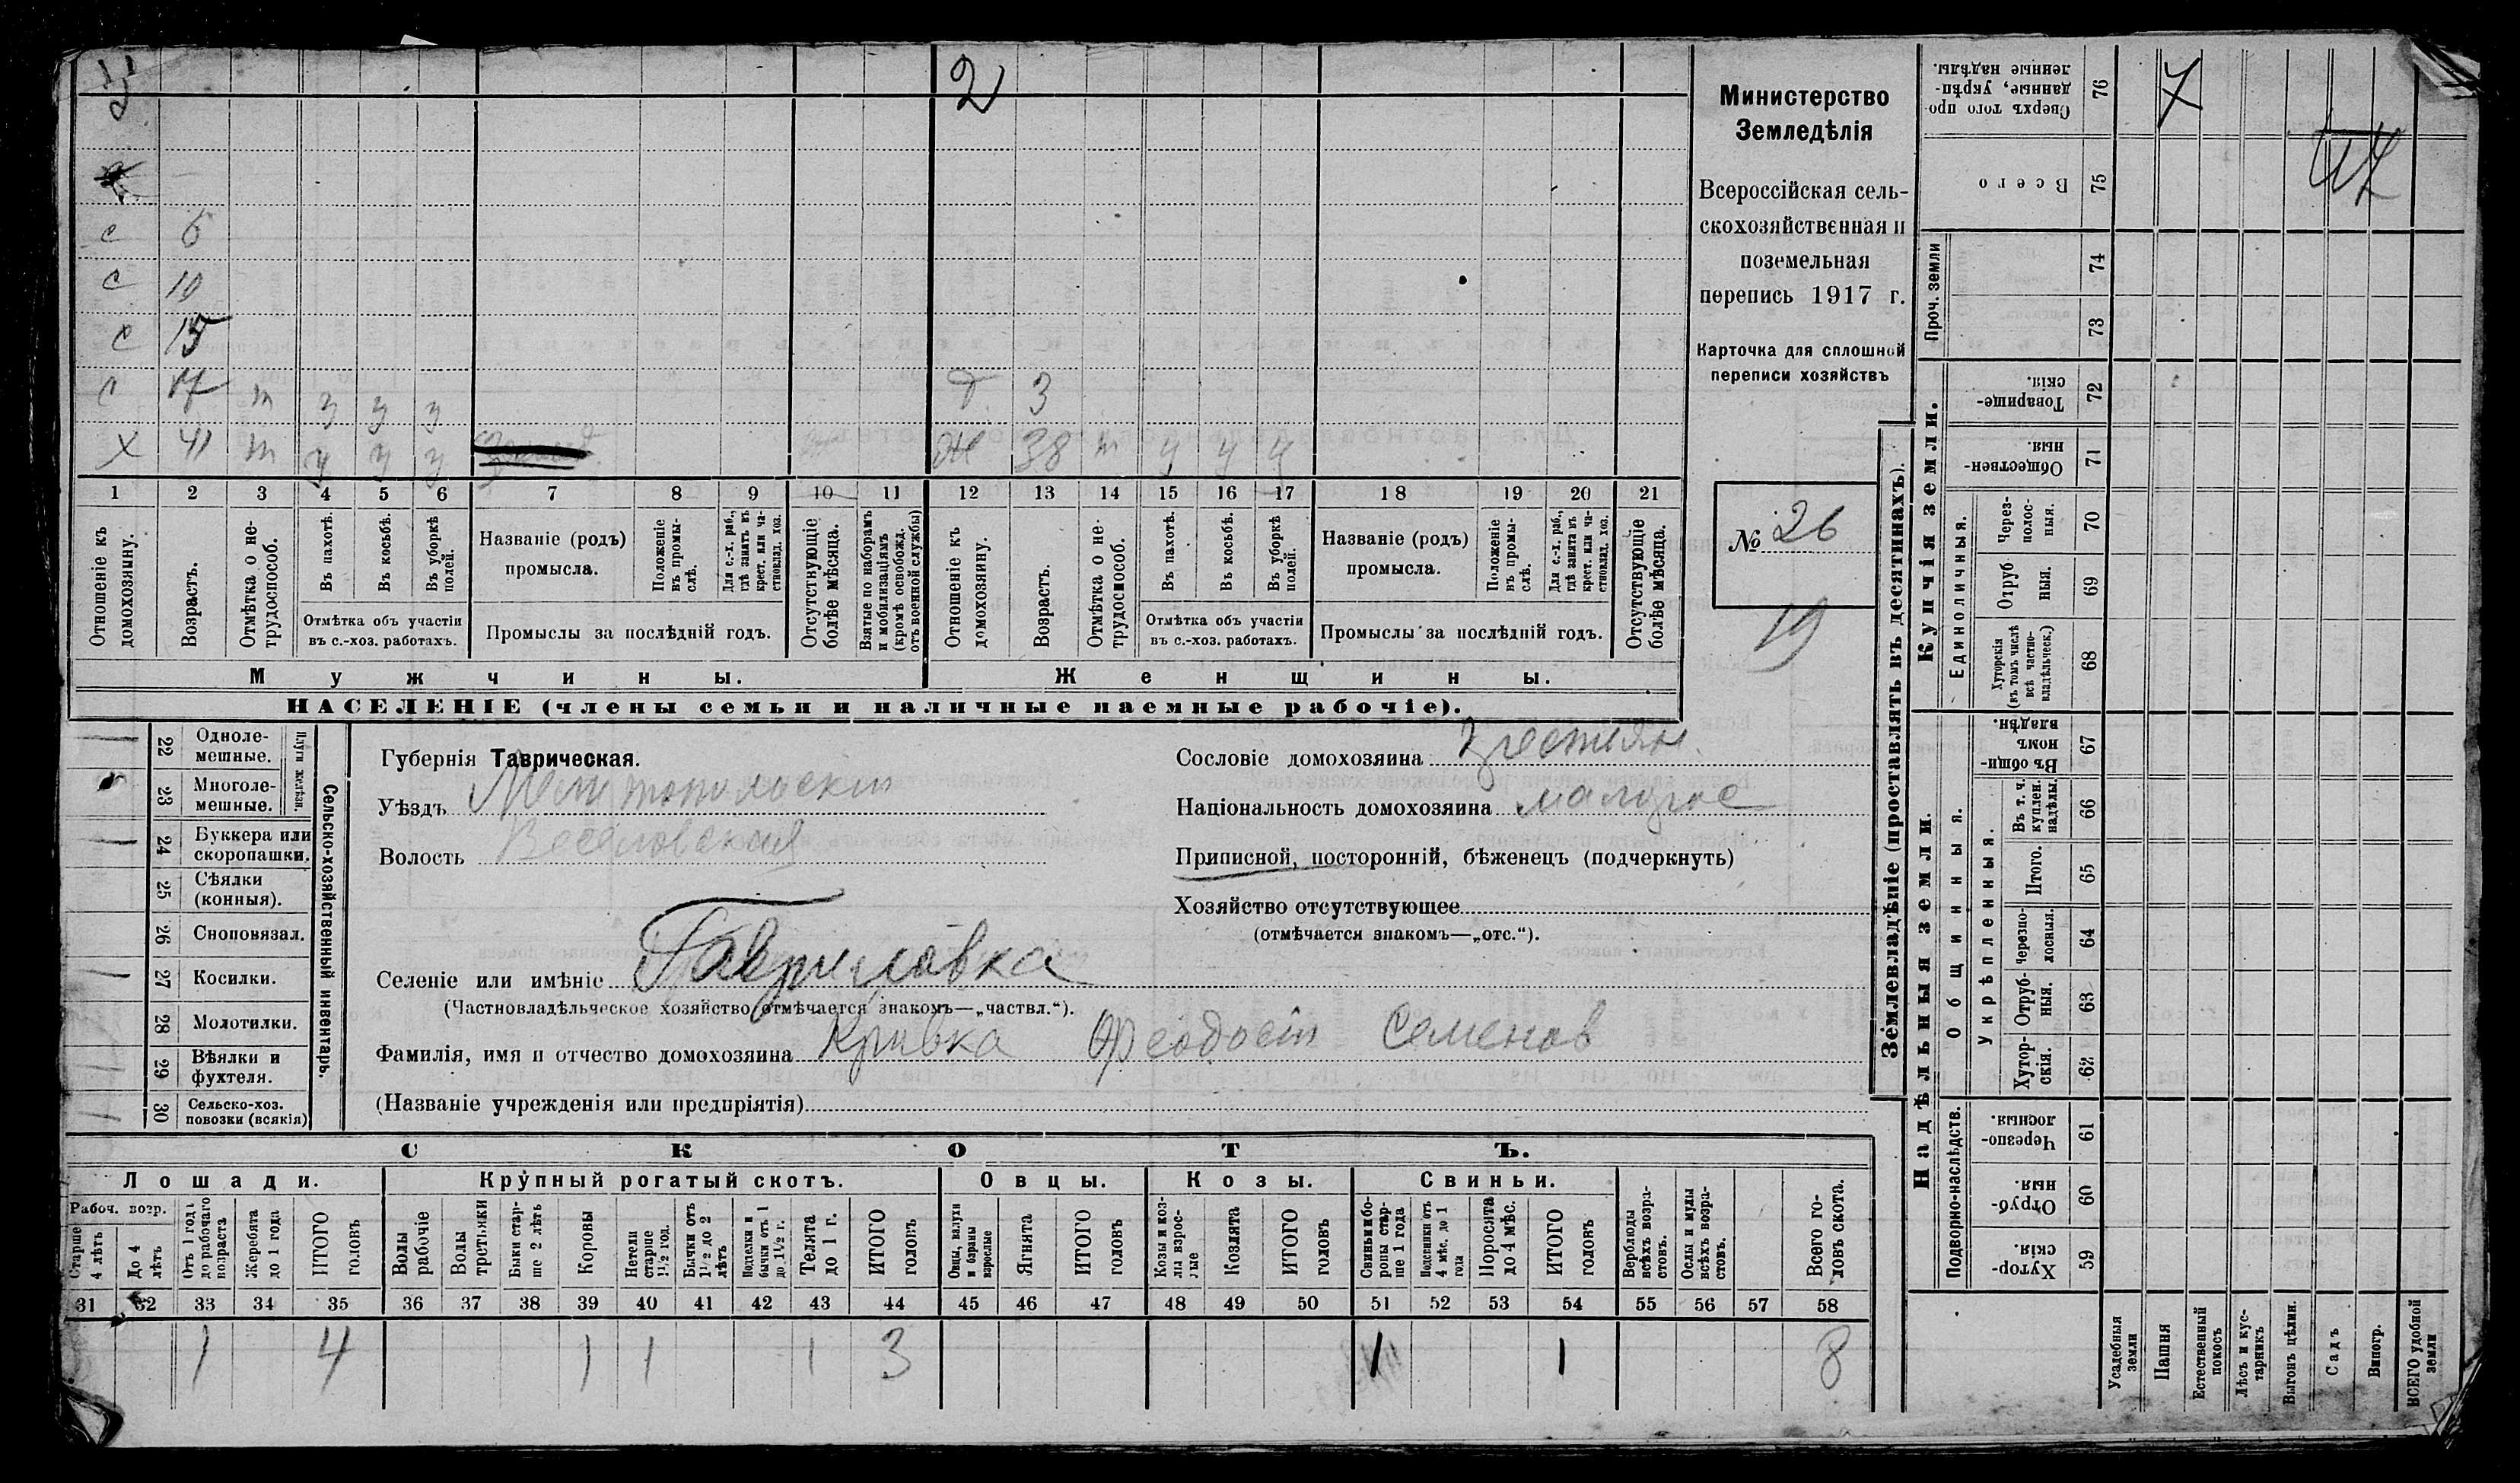 2
Министерство
Земледѣлія
Всероссійская сель-
скохозяйственная и
поземельная
перепись 1917 г.
Карточка для сплошной
переписи хозяйствъ
№ 26
19
с 6
с 10
с 15
с 17 т у у у д 3
х 41 т у у у ж 38 т у у у
1 2 3 4 5 6 7 8 9 10 11 12 13 14 15 16 17 18 19 20 21
Отношеніе къ домохозяину.
Возрастъ.
Отмѣтка о не-трудоспособ.
Въ пахотѣ.
Въ косьбѣ.
Въ уборкѣ полей.
Отмѣтка объ участіи
въ с.-хоз. работахъ.
Названіе (родъ)
промысла.
Положеніе въ промы-слѣ.
Для с.-х. раб., гдѣ занятъ въ крест. или ча-стновлад. хоз.
Промыслы за послѣдній годъ.
Отсутствующіе болѣе мѣсяца.
Взятые по наборамъ и мобилизаціямъ (кромѣ освобожд. отъ военной службы)
Отношеніе къ домохозяину.
Возрастъ.
Отмѣтка о не-трудоспособ.
Въ пахотѣ.
Въ косьбѣ.
Въ уборкѣ полей.
Отмѣтка объ участіи
въ с.-хоз. работахъ.
Названіе (родъ)
промысла.
Положеніе въ промы-слѣ.
Для с.-х. раб., гдѣ занята въ крест. или ча-стновлад. хоз.
Промыслы за послѣдній годъ.
Отсутствующіе болѣе мѣсяца.
Мужчины.
Женщины.
НАСЕЛЕНІЕ (члены семьи и наличные наемные рабочіе).
22 Однолемешные.
23 Многолемешные.
Плуги желѣзн.
24 Буккера или скоропашки.
25 Сѣялки (конныя).
26 Сноповязал.
27 Косилки.
28 Молотилки.
29 Вѣялки и фухтеля.
30 Сельско-хоз. повозки (всякія)
Сельско-хозяйственный инвентарь.
Губернія Таврическая.
Уѣздъ Мелитопольскій
Волость Веселовская
Селеніе или имѣніе Гавриловка
(Частновладѣльческое хозяйство отмѣчается знакомъ—„частвл.“).
Фамилія, имя и отчество домохозяина Кривка Феодосій Семенов
(Названіе учрежденія или предпріятія)
Сословіе домохозяина крестьян.
Національность домохозяина малорос
Приписной, посторонній, бѣженецъ (подчеркнуть)
Хозяйство отсутствующее
(отмѣчается знакомъ—„отс.“).
СКОТЪ.
Лошади. Крупный рогатый скотъ. Овцы. Козы. Свиньи.
Рабоч. возр.
Старше 4 лѣтъ
До 4 лѣтъ
Отъ 1 года до рабочаго возраста
Жеребята до 1 года
ИТОГО головъ
Волы рабочіе
Волы третьяки
Быки стар-ше 2 лѣтъ
Коровы
Нетели старше 1½ год.
Бычки отъ 1½ до 2 лѣтъ
Подтелки и бычки отъ 1 до 1½ г.
Телята до 1 г.
ИТОГО головъ
Овцы, валухи и бараны взрослые
Ягнята
ИТОГО головъ
Козы и коз-лы взрос-лые
Козлята
ИТОГО головъ
Свиньи и бо-ровы стар-ше 1 года
Подсвинки отъ 4 мѣс. до 1 года
Поросята до 4 мѣс.
ИТОГО головъ
Верблюды всѣхъ возра-стовъ.
Ослы и мулы всѣхъ возра-стовъ.
Всего го-ловъ скота.
31 32 33 34 35 36 37 38 39 40 41 42 43 44 45 46 47 48 49 50 51 52 53 54 55 56 57 58
1 4 1 1 1 3 1 1 8
Землевладѣніе (проставлять въ десятинахъ).
Купчія земли.
Надѣльныя земли.
Сверхъ того про-данные, укрѣп-ленные надѣлы. 76
Всего 75
Проч. земли 74
73
Товарище-скія. 72
Обществен-ныя. 71
Единоличныя.
Через-полос-ныя. 70
Отруб-ныя. 69
Хуторскія (въ томъ числѣ всѣ частно-владѣльческ.) 68
Общинныя.
Въ общи-номъ владѣн. 67
Укрѣпленныя.
Въ т. ч. куплен. надѣлы. 66
Итого. 65
Черезпо-лосныя. 64
Отруб-ныя. 63
Хутор-скія. 62
Подворно-наслѣдств.
Черезпо-лосныя. 61
Отруб-ныя. 60
Хутор-скія. 59
Усадебныя земли
Пашня
Естественный покосъ
Лѣсъ и кус-тарникъ
Выгонъ цѣлин.
Садъ
Виногр.
ВСЕГО удобной земли